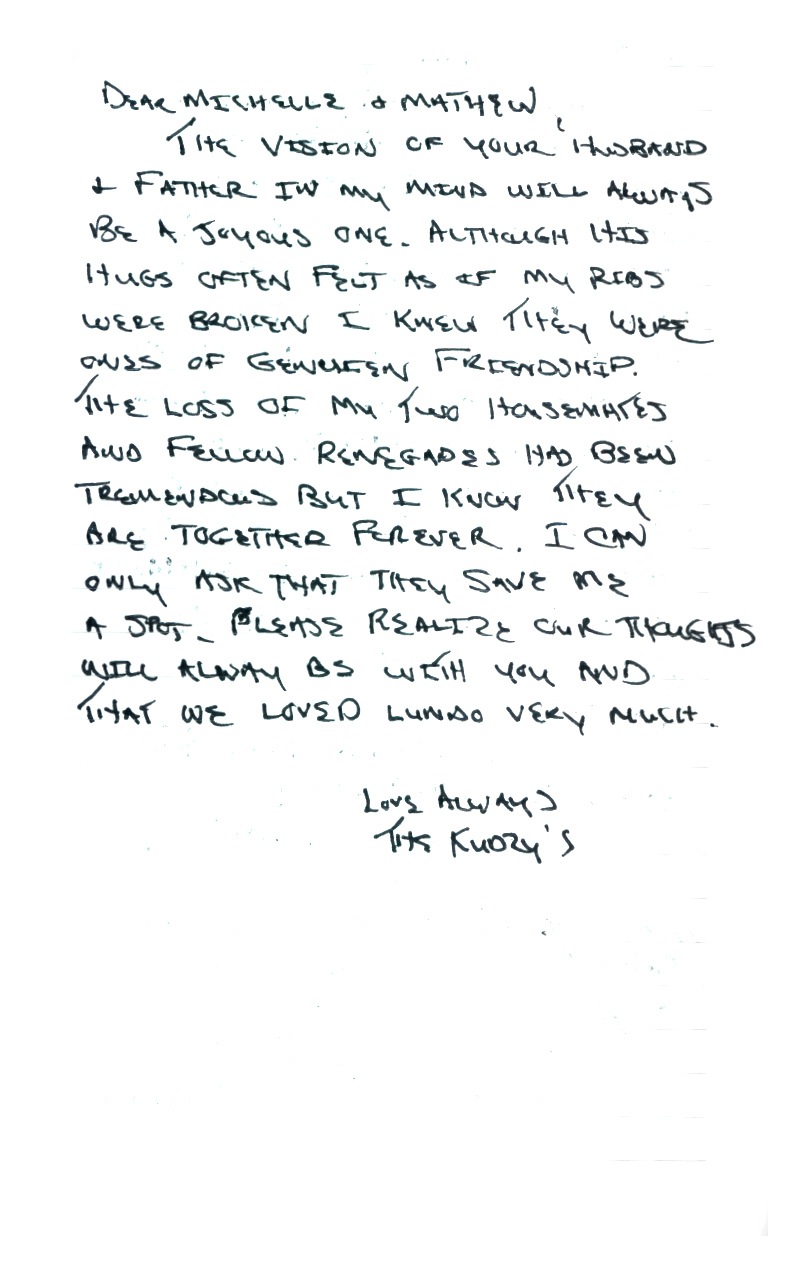 DEAR MICHELLE & MATHEW,
THE VISION OF YOUR HUSBAND
& FATHER IN MY MIND WILL ALWAYS
BE A JOYOUS ONE. ALTHOUGH HIS
HUGS OFTEN FELT AS IF MY RIBS
WERE BROKEN I KNEW THEY WERE
ONES OF GENUIEN FRIENDSHIP.
THE LOSS OF MY TWO HOUSEMATES
AND FELLOW RENEGADES HAD BEEN
TREMENDOUS BUT I KNOW THEY
ARE TOGETHER FEREVER. I CAN
ONLY ASK THAT THEY SAVE ME
A SPOT. PLEASE REALIZE OUR THOUGHTS
WILL ALWAY BE WITH YOU AND
THAT WE LOVED LUNDO VERY MUCH.
LOVE ALWAYS
THE KUDZY'S